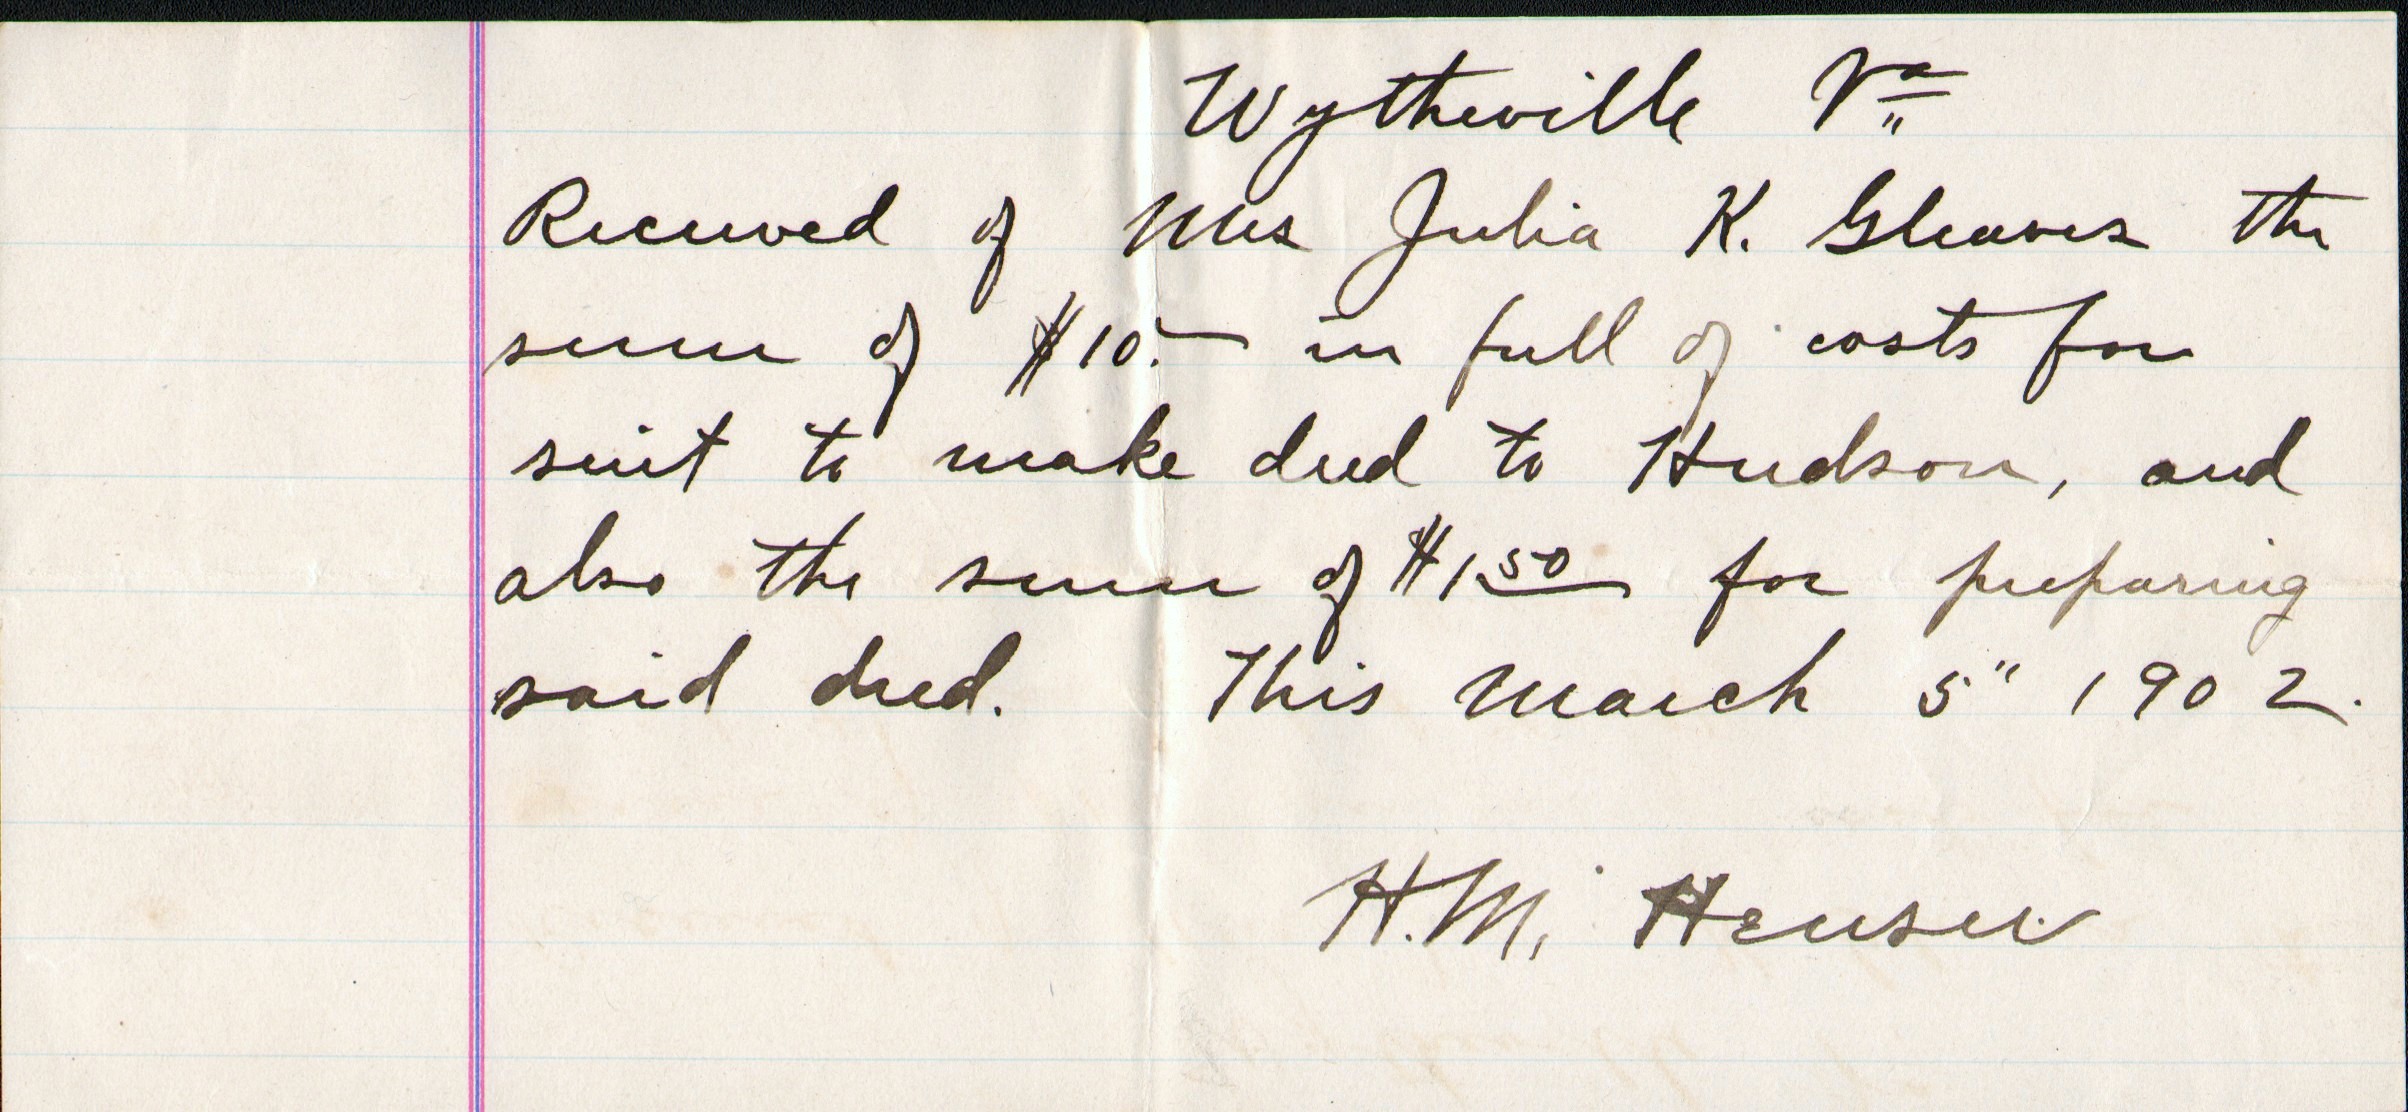 Wytheville Va
Received of Mrs Julia K. Gleaves the
sum of $10.— in full of costs for
suit to make deed to Hudson, and
also the sum of $1.50 for preparing
said deed. This March 5" 1902.
H.M. Heuser